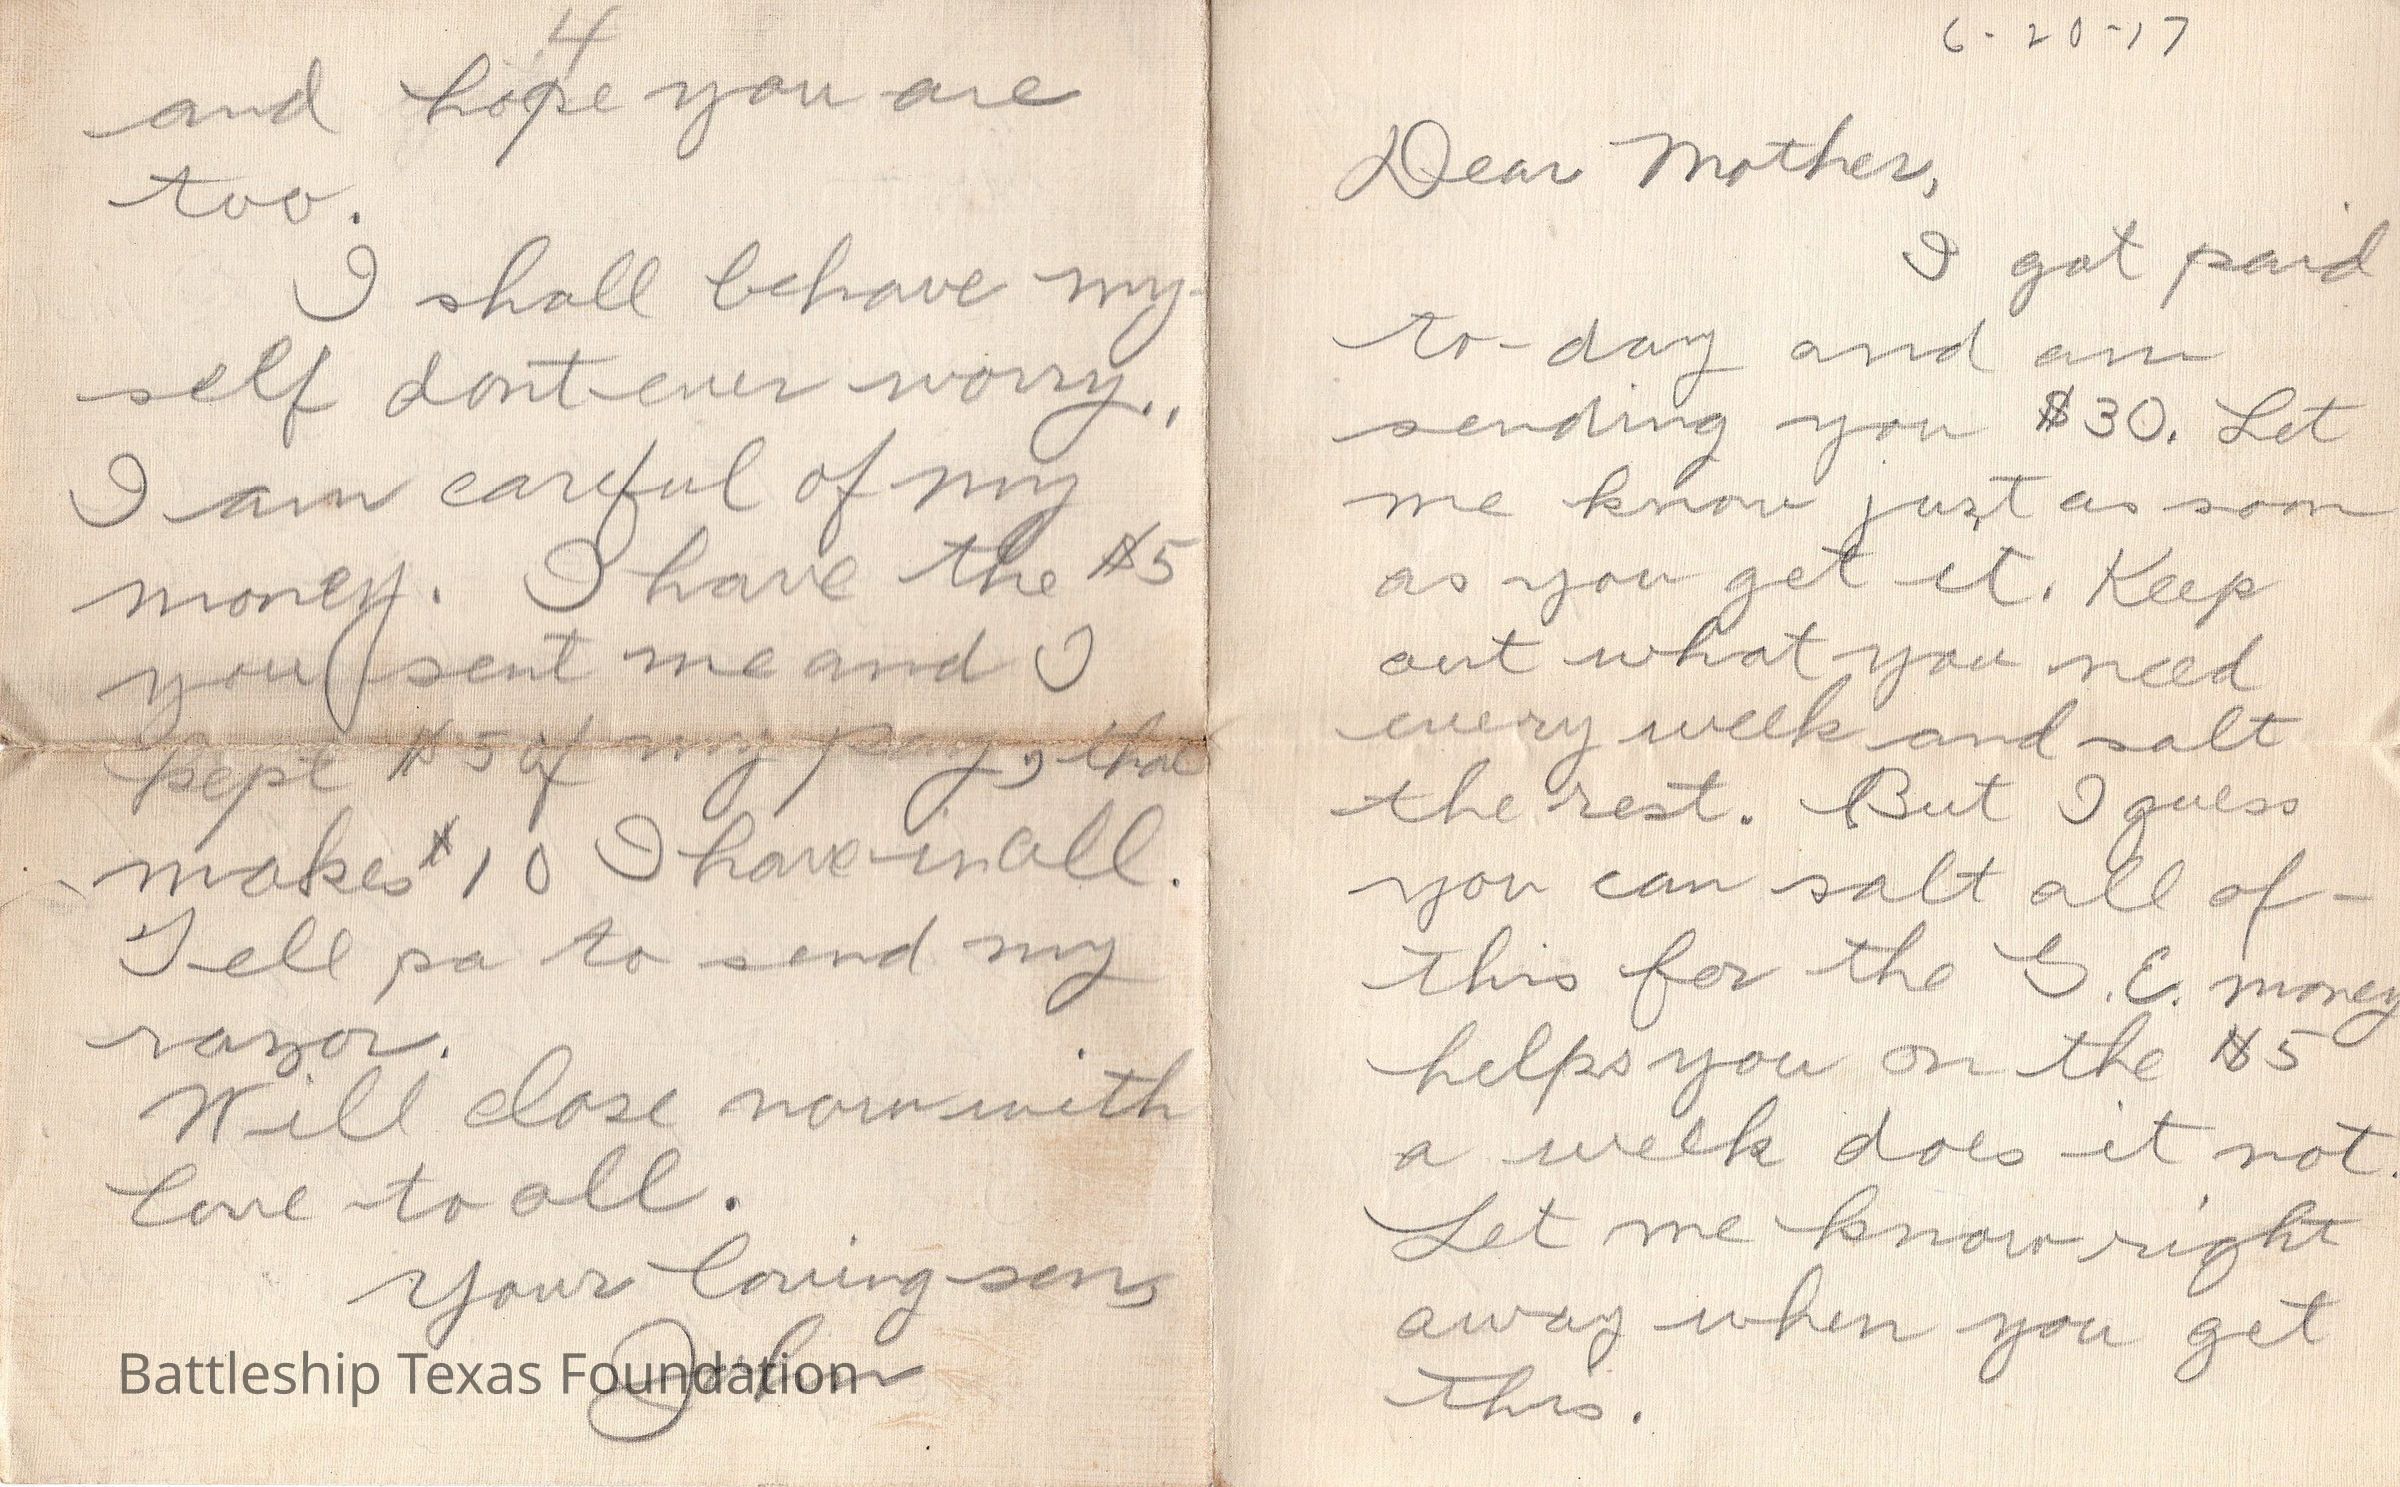 6-20-17
Dear Mother,
I got paid
to-day and am
sending you $30. Let
me know just as soon
as you get it. Keep
out what you need
every week and salt
the rest. But I guess
you can salt all of-
this for the G.E. money
helps you on the $5
a week does it not.
Let me know right
away when you get
this.
4
and hope you are
too.
I shall behave my-
self dont ever worry.,
I am careful of my
money. I have the $5
you sent me and I
kept $5 of my pay, that
makes $10 I have in all.
Tell pa to send my
razor.
Will close now with
love to all.
Your loving son,
John
Battleship Texas Foundation